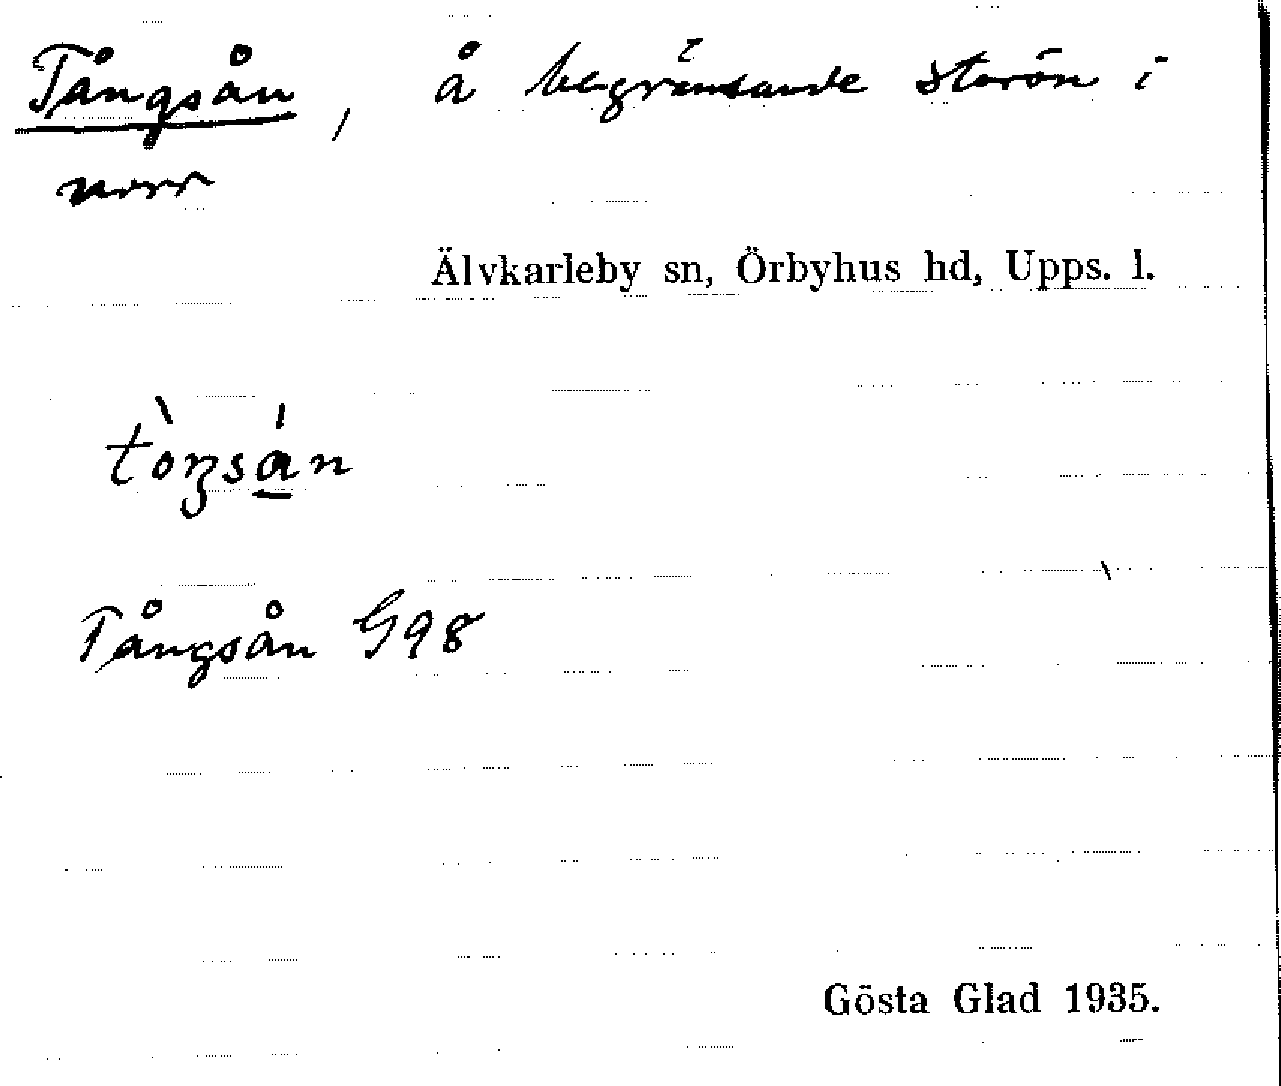 Tångsån, å begränsande Storön i
norr
Älvkarleby sn, Örbyhus hd, Upps. l.
tòŋsán
Tångsån G98
Gösta Glad 1935.